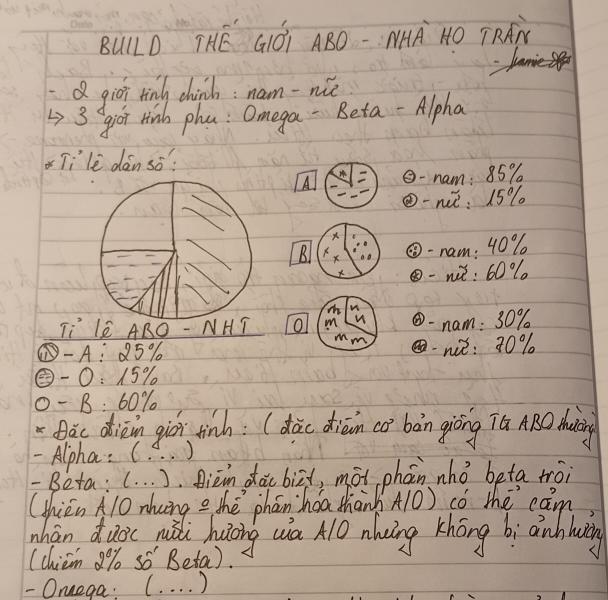 BUILD THẾ GIỚI ABO - NHÀ HỌ TRẦN
- 2 giới tính chính : nam - nữ
↳ 3 giới tính phụ : Omega - Beta - Alpha
* Tỉ lệ dân số :
A
- nam : 85%
- nữ : 15%
B
- nam : 40%
- nữ : 60%
O
- nam : 30%
- nữ : 70%
Tỉ lệ ABO - NHT
- A : 25%
- O : 15%
- B : 60%
* Đặc điểm giới tính : ( đặc điểm cơ bản giống TG ABO thường
- Alpha : (...)
- Beta : (...). Điểm đặc biệt, một phần nhỏ beta trội
(thiên A/O nhưng o thể phân hóa thành A/O) có thể cảm
nhận được mùi hương của A/O nhưng không bị ảnh hưởng
(chiếm 2% số Beta).
- Omega : (....)